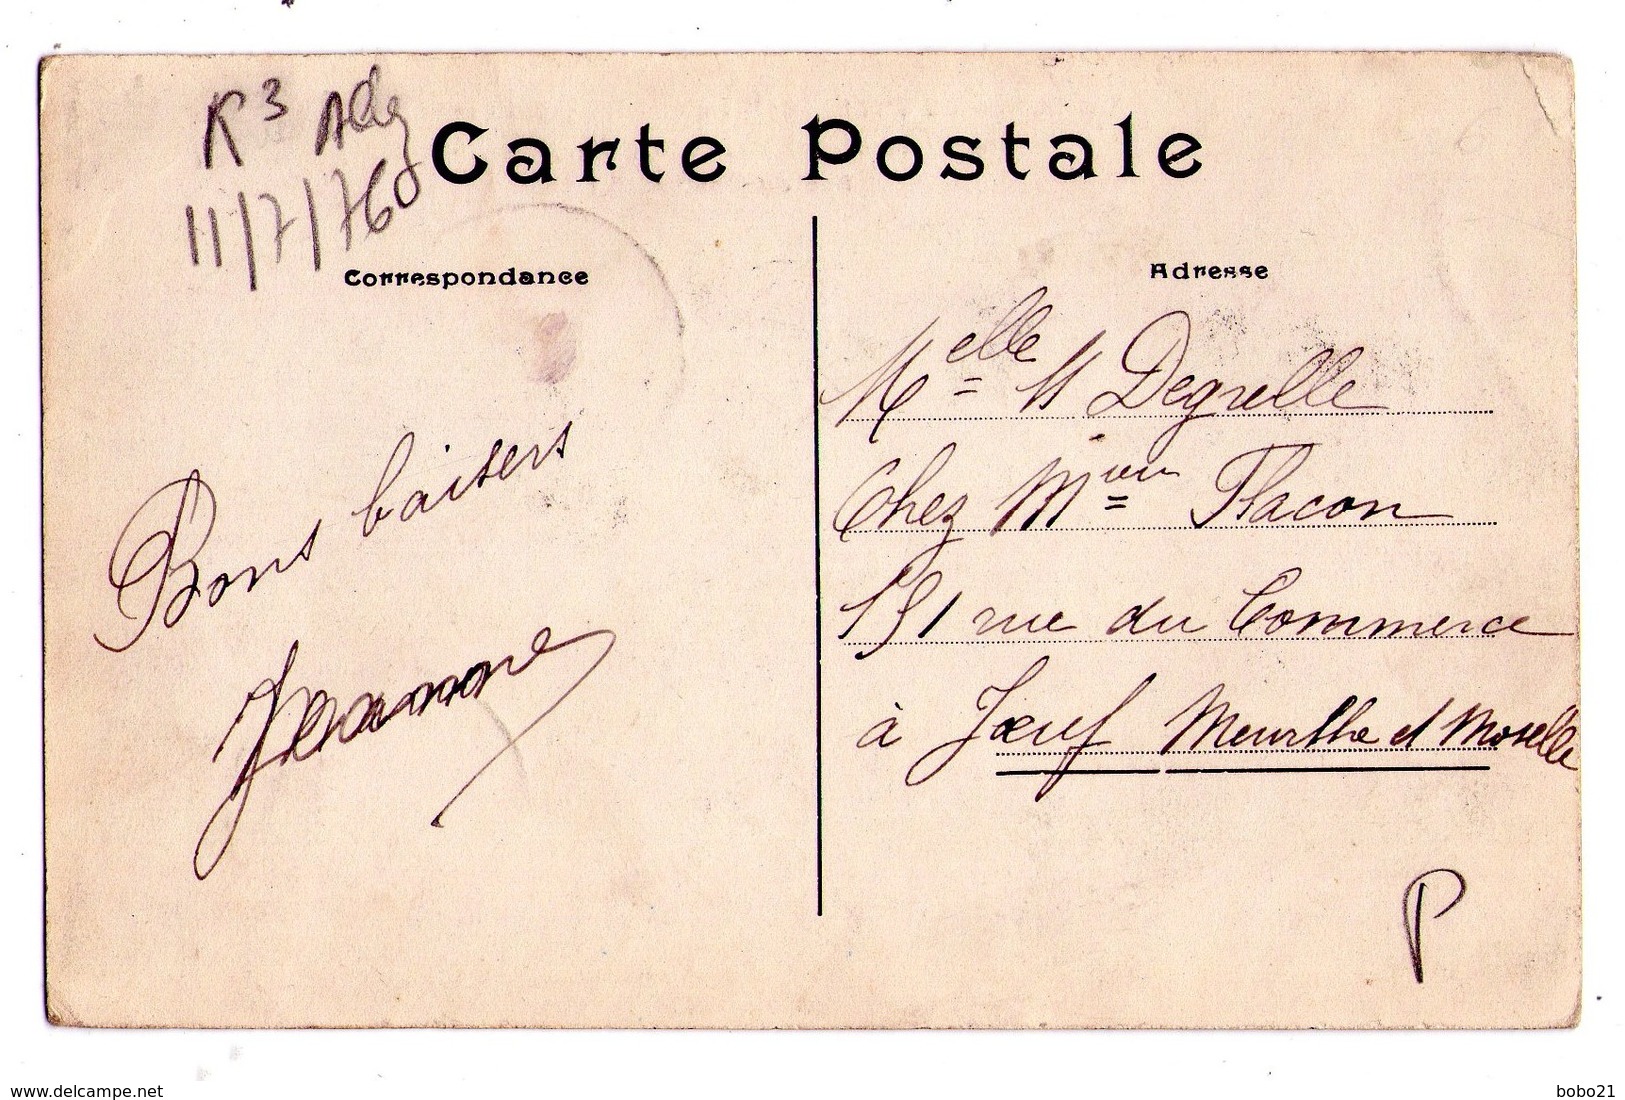 K3
11/7/76
Carte Postale
Correspondance
Adresse
Bons baisers
Jeanne
Melle M Degrelle
Chez Mme Flacon
151 rue du Commerce
à Jœuf Meurthe et Moselle
P
www.delcampe.net
bobo21